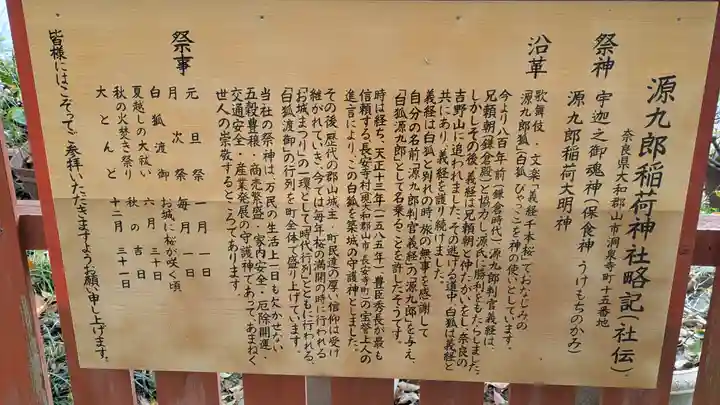 源九郎稲荷神社略記(社伝)
奈良県大和郡山市洞泉寺町十五番地
祭神 宇迦之御魂神(保食神 うけもちのかみ)
源九郎稲荷大明神
沿革
歌舞伎・文楽「義経千本桜」でおなじみの
源九郎狐(白狐 びゃっこ)を神の使いとしています。
今より八百年前(鎌倉時代)源九郎判官義経は、
兄頼朝(鎌倉殿)と協力し、源氏に勝利をもたらしました。
しかしその後、義経は兄頼朝と仲たがいをし、奈良の
吉野山に追われました。その逃げる道中、白狐は義経と
共にあり、義経を護り続けました。
義経は白狐と別れの時、旅の無事を感謝して
自分の名前「源九郎判官義経」の「源九郎」を与え、
「白狐源九郎」として名乗ることを許したそうです。
時は経ち、天正十三年(一五八五年)、豊臣秀長が最も
信頼する、長安寺村(現大和郡山市長安寺町)の宝誉上人の
進言により、この白狐を築城の守護神としました。
その後、歴代の郡山城主・町民達の厚い信仰は受け
継がれていき、今では毎年桜の満開の時に行われる、
「お城まつり」の一環として「時代行列」とともに行われる、
「白狐渡御」の行列を町全体で盛り上げています。
当社の祭神は、万民の生活上一日も欠かせない
五穀豊穣・商売繁盛・家内安全・厄除開運・
交通安全・産業発展の守護神であって、あまねく
世人の崇敬するところであります。
祭事
元旦祭 一月一日
月次祭 毎月一日
白狐渡御 お城に桜が咲く頃
夏越しの大祓い 六月三十日
秋の火焚き祭り 秋の吉日
大とんど 十二月三十一日
皆様にはこぞってご参拝いただきますようお願い申し上げます。